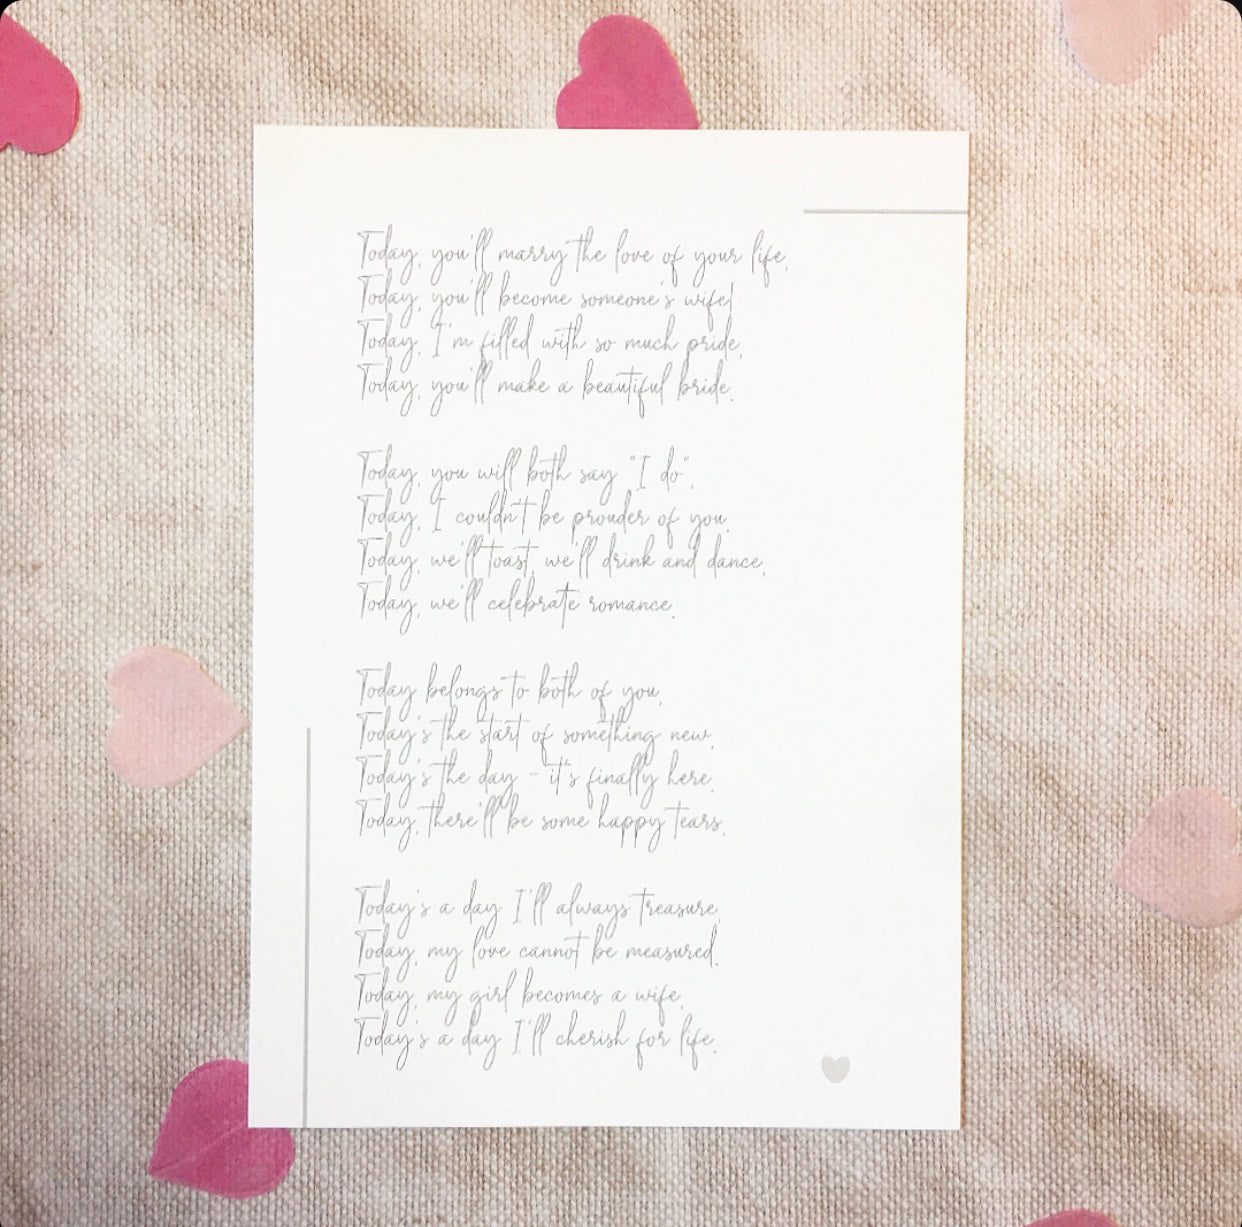 Today, you'll marry the love of your life,
Today, you'll become someone's wife!
Today, I'm filled with so much pride,
Today, you'll make a beautiful bride.
Today, you will both say "I do",
Today, I couldn't be prouder of you.
Today, we'll toast, we'll drink and dance,
Today, we'll celebrate romance.
Today belongs to both of you,
Today's the start of something new.
Today's the day - it's finally here,
Today, there'll be some happy tears.
Today's a day I'll always treasure,
Today, my love cannot be measured.
Today, my girl becomes a wife,
Today's a day I'll cherish for life.